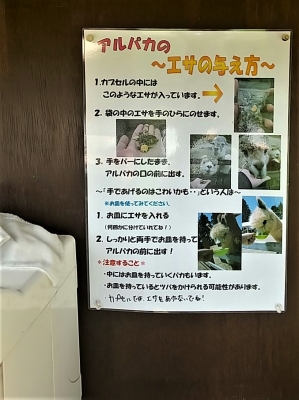 アルパカの
～エサの与え方～
1.カプセルの中には
このようなエサが入っています。
2. 袋の中のエサを手のひらにのせます。
3. 手をパーにしたまま、
アルパカの口の前に出す。
～「手であげるのはこわいかも・・」という人は～
※お皿を使ってみてください。
1. お皿にエサを入れる
(何回かに分けていれてね！)
2. しっかりと両手でお皿を持って
アルパカの前に出す！
※注意すること※
・中にはお皿を持っていくパカもいます。
・お皿を持っているとツバをかけられる可能性があります。
カプセルでは、エサをあげないでね！